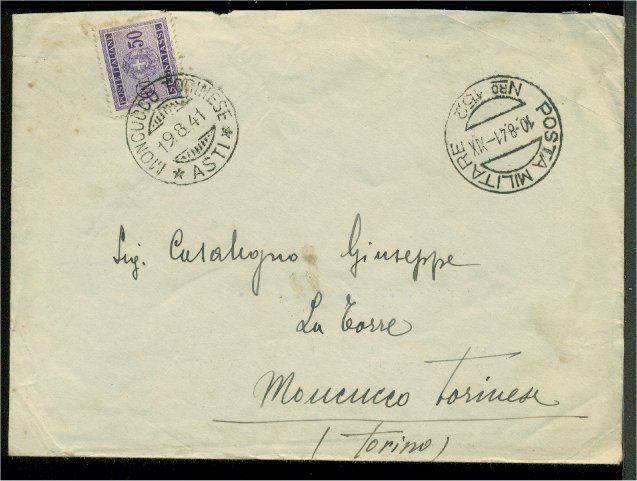 50
SEGNATASSE
POSTE ITALIANE
MONCUCCO TORINESE
19.8.41
* ASTI *
POSTA MILITARE
10-8.41-XIX
NRO 152
Sig. Casalegno Giuseppe
La Torre
Moncucco Torinese
(Torino)